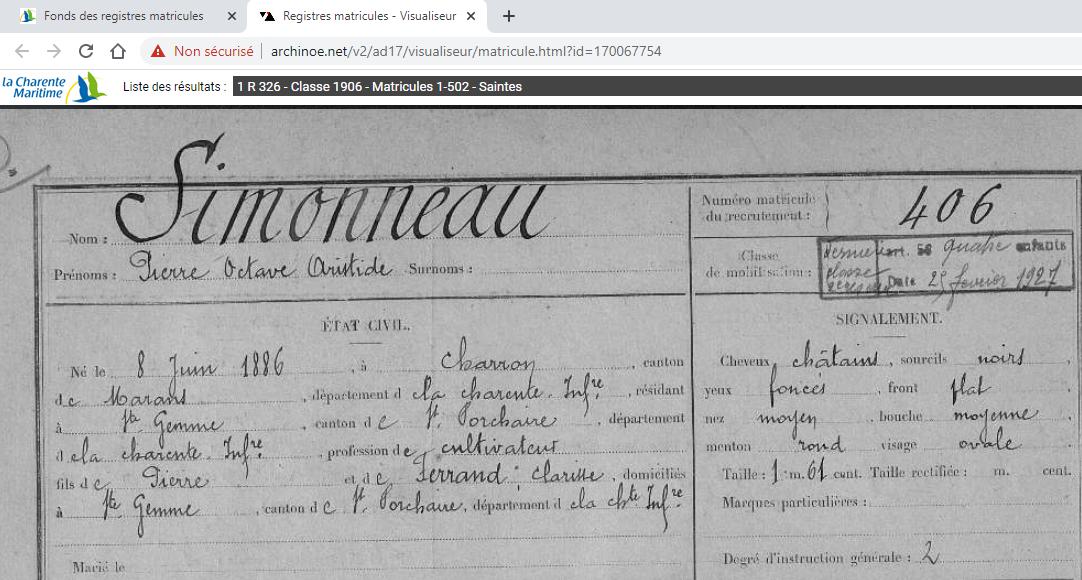 Fonds des registres matricules
Registres matricules - Visualiseur
Non sécurisé
archinoe.net/v2/ad17/visualiseur/matricule.html?id=170067754
la Charente
Maritime
Liste des résultats :
1 R 326 - Classe 1906 - Matricules 1-502 - Saintes
Nom : Simonneau
Prénoms : Pierre Octave Aristide Surnoms :
Numéro matricule
du recrutement : 406
Classe
de mobilisation :
art. 58 quatre enfants
classe
Date 25 février 1927
ÉTAT CIVIL.
Né le 8 Juin 1886 , à Charron , canton
de Marans , département d e la charente Infre , résidant
à Ste Gemme , canton de St Porchaire , département
d e la charente Infre , profession de cultivateur
fils de Pierre et de Ferrand Clarisse , domiciliés
à Ste Gemme , canton de St Porchaire , département d e la chte Infre
Marié le
SIGNALEMENT.
Cheveux châtains , sourcils noirs ,
yeux foncés , front plat ,
nez moyen , bouche moyenne ,
menton rond visage ovale
Taille : 1 m. 61 cent. Taille rectifiée : m. cent.
Marques particulières :
Degré d'instruction générale : 2